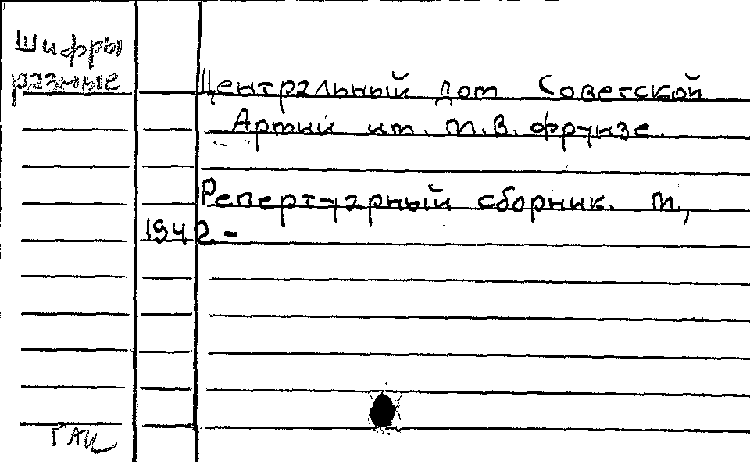 Шифры
разные
Центральный дом Советской
Армии им. М.В. Фрунзе.
Репертуарный сборник. М.,
1942-
ГАК